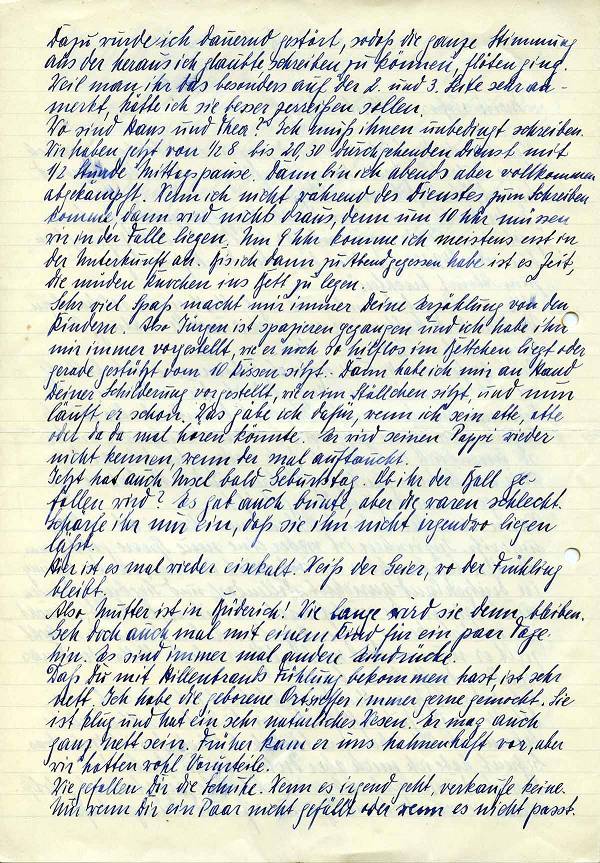 Dazu wurde ich dauernd gestört, sodoß die ganze Stimmung
aus der heraus ich glaubte schreiben zu können, flöten ging.
Weil man ihr das besonders auf der 2. und 3. Seite sehr an-
merkt, hätte ich sie besser zerreißen sollen.
Wo sind Hans und Thea? Ich muß ihnen unbedingt schreiben.
Wir haben jetzt von 1/2 8 bis 20,30 durchgehenden Dienst mit
1/2 Stunde Mittagspause. Dann bin ich abends aber vollkommen
abgekämpft. Wenn ich nicht während des Dienstes zum Schreiben
komme, dann wird nichts draus, denn um 10 Uhr müssen
wir in der Falle liegen. Um 9 Uhr komme ich meistens erst in
der Unterkunft an. Bis ich dann zu Abend gegessen habe ist es Zeit,
die müden Knochen ins Bett zu legen.
Sehr viel Spaß macht mir immer Deine Erzählung von den
Kindern. Also Jürgen ist spazieren gegangen und ich habe ihn
mir immer vorgestellt, wie er noch so hilflos im Bettchen liegt oder
gerade gestützt vom 10 Kissen sitzt. Dann habe ich mir an Hand
Deiner Schilderung vorgestellt, wie er im Ställchen sitzt, und nun
läuft er schon. Was gäbe ich dafür, wenn ich sein atte, atte
oder da da mal hören könnte. Er wird seinen Pappi wieder
nicht kennen wenn der mal auftaucht.
Jetzt hat auch Ursel bald Geburtstag. Ob ihr der Ball ge-
fallen wird? Es gab auch bunte, aber die waren schlecht.
Schärfe ihr nur ein, daß sie ihn nicht irgendwo liegen
läßt.
Hier ist es mal wieder eiskalt. Weiß der Geier, wo der Frühling
bleibt.
Also Mutter ist in Büderich! Wie lange wird sie denn bleiben.
Geh doch auch mal mit einem Kind für ein paar Tage
hin. Es sind immer mal andere Eindrücke.
Daß Du mit Hillentrands Fühlung bekommen hast, ist sehr
nett. Ich habe die geborene Ortsiefer immer gerne gemocht. Sie
ist klug und hat ein sehr natürliches Wesen. Er mag auch
ganz nett sein. Früher kam er uns hahnenhaft vor, aber
wir hatten wohl Vorurteile.
Wie gefallen Dir die Schuhe. Wenn es irgend geht, verkaufe keine.
Nur wenn Dir ein Paar nicht gefällt oder wenn es nicht passt.